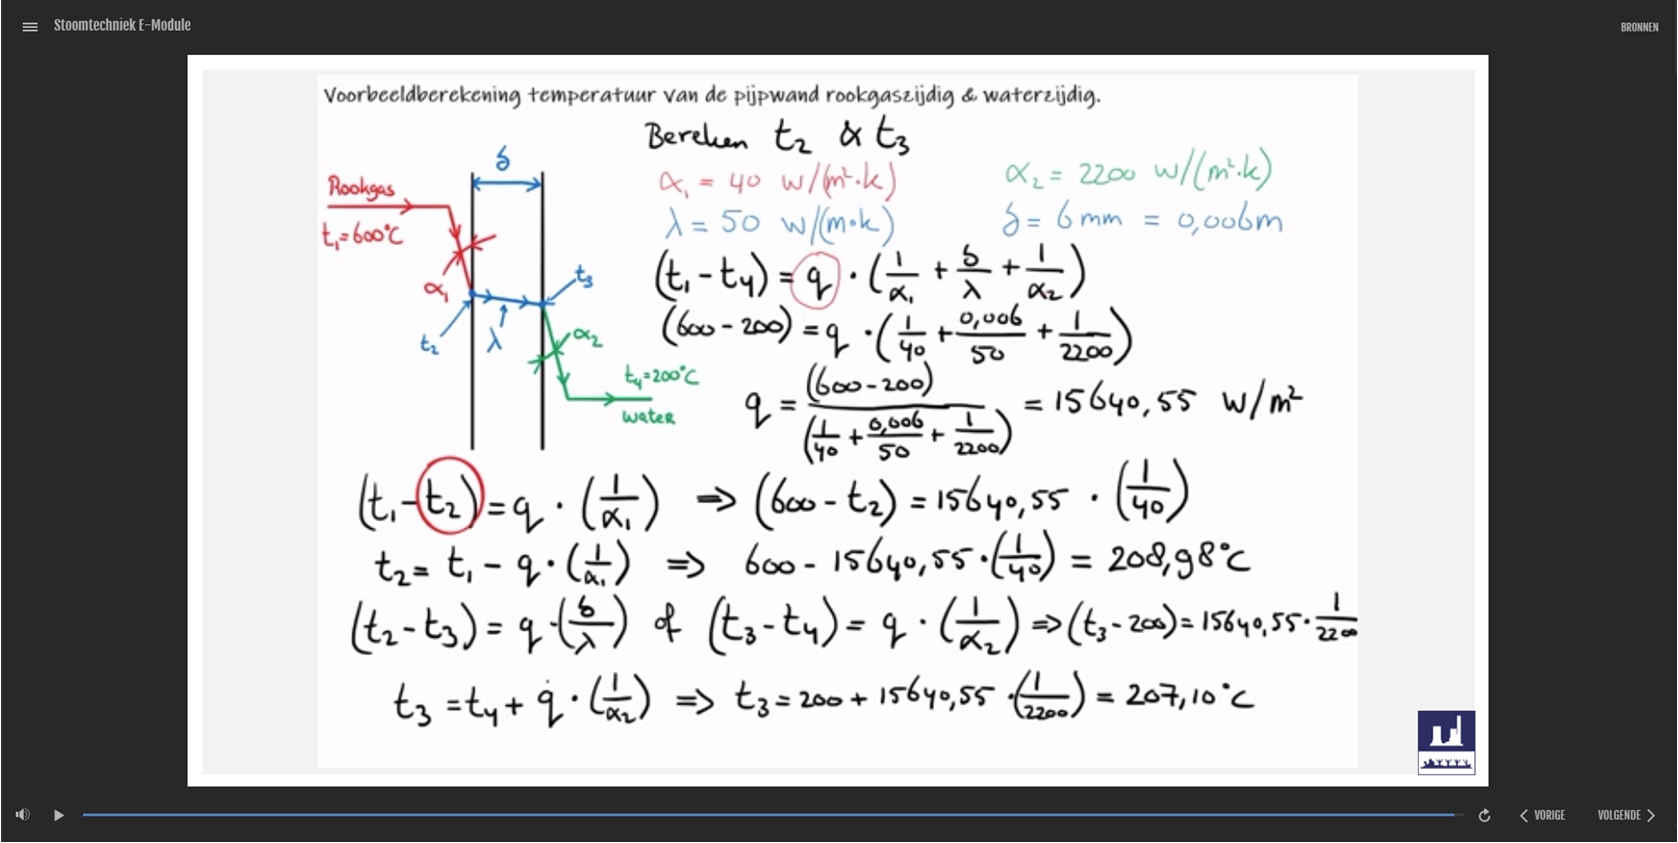 Stoomtechniek E-Module
BRONNEN
Voorbeeldberekening temperatuur van de pijpwand rookgaszijdig & waterzijdig.
Bereken t₂ & t₃
δ
Rookgas
t₁=600°C
α₁
t₂
λ
t₃
α₂
t₄=200°C
water
α₁ = 40 W/(m²·k)
α₂ = 2200 W/(m²·k)
λ = 50 W/(m·k)
δ = 6 mm = 0,006m
(t₁ - t₄) = q · (1/α₁ + δ/λ + 1/α₂)
(600 - 200) = q · (1/40 + 0,006/50 + 1/2200)
q = (600 - 200)/(1/40 + 0,006/50 + 1/2200) = 15640,55 W/m²
(t₁ - t₂) = q · (1/α₁) ⇒ (600 - t₂) = 15640,55 · (1/40)
t₂ = t₁ - q · (1/α₁) ⇒ 600 - 15640,55 · (1/40) = 208,98°C
(t₂ - t₃) = q · (δ/λ) of (t₃ - t₄) = q · (1/α₂) ⇒ (t₃ - 200) = 15640,55 · 1/2200
t₃ = t₄ + q · (1/α₂) ⇒ t₃ = 200 + 15640,55 · (1/2200) = 207,10°C
VORIGE
VOLGENDE